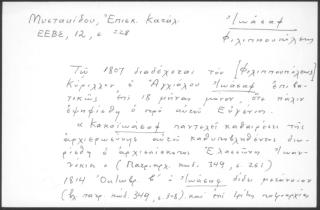 Μυστακίδου, Ἐπισκ. Κατάλ.
ΕΕΒΣ, 12, σ 228
Ἰωάσαφ
Φιλιππουπόλεως
Τῷ 1807 διαδέχεται τὸν [Φιλιππουπόλεως]
Κύριλλον ὁ Ἀγχιάλου Ἰωάσαφ ἐπιβα-
τικῶς, ἐπὶ 18 μῆνας μόνον, ὅτε πάλιν
ἐψηφίσθη ὁ πρὸ αὐτοῦ Εὐγένιος.
"Κακοϊωάσαφ παντοχεί καθαιρέσει τῆς
ἀρχιερωσύνης αὐτοῦ καθυποβληθέντα διω-
ρίσθη ὁ ἀρχιδιάκονος Ἐλασσῶνος Ἰωαν-
νίκιος" (Πατριαρχ. κωδ. 149, σ. 261)
1814 Ὀκτωβρ. β' ὁ Ἰωάσαφ δίδει μετάνοιαν
(ἐν πατρ. κωδ. 949, σ. 308) καὶ